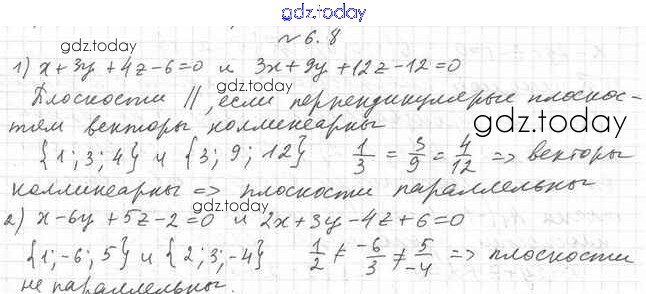 gdz.today
№6.8
gdz.today
1) x+3y+4z-6=0 и 3x+9y+12z-12=0
Плоскости ||, если перпендикулярные плоскос-
тям векторы коллинеарны
gdz.today
{1; 3; 4} и {3; 9; 12} 1/3 = 3/9 = 4/12 => векторы
коллинеарны => плоскости параллельны
gdz.today
2) x-6y+5z-2=0 и 2x+3y-4z+6=0
{1; -6; 5} и {2; 3; -4} 1/2 ≠ -6/3 ≠ 5/-4 => плоскости
не параллельны.
gdz.today